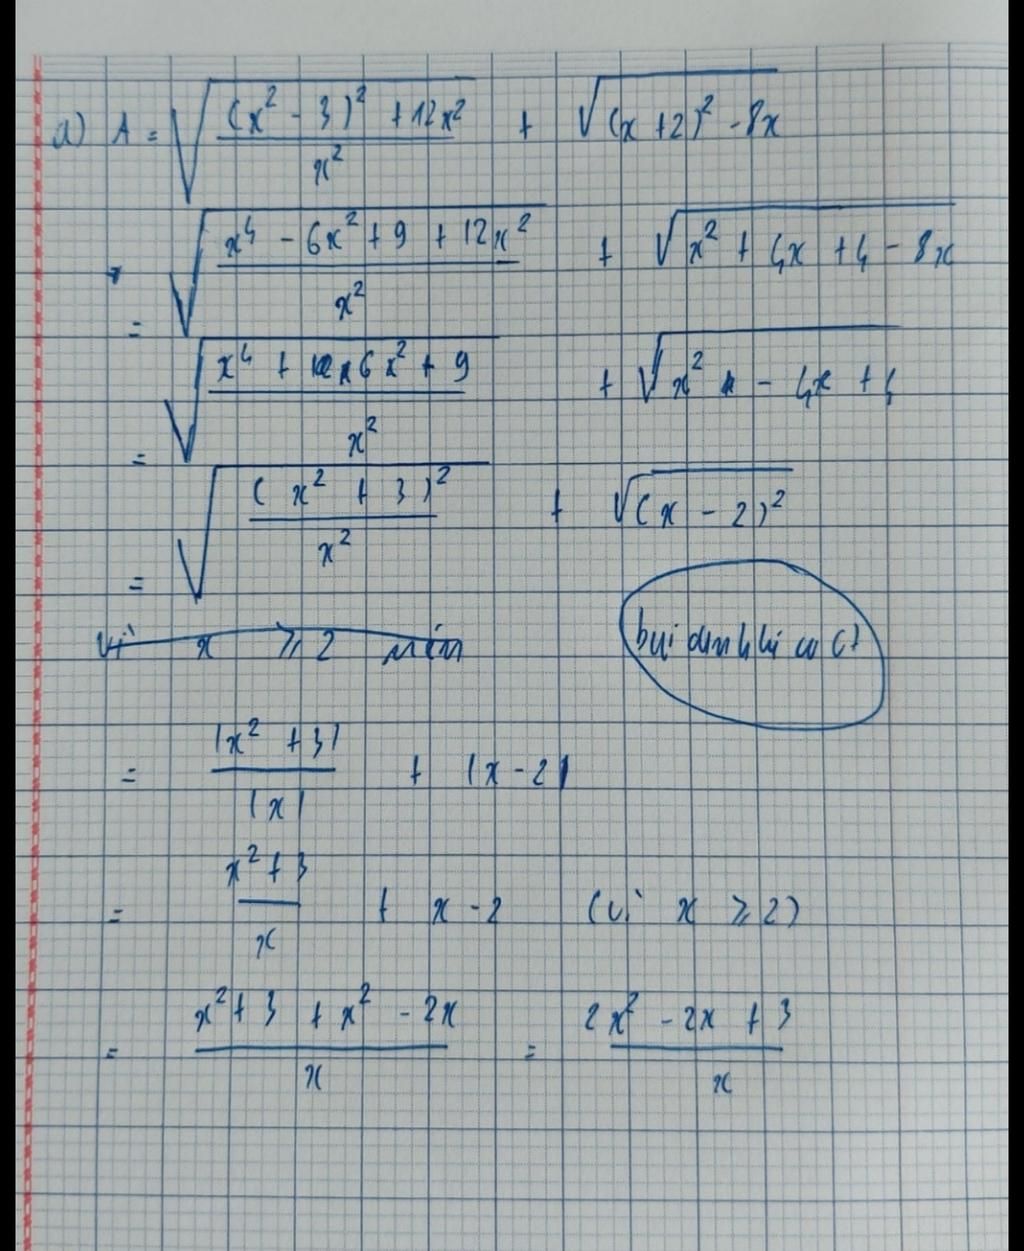 a) A = √(((x² - 3)² + 12x²)/x²) + √((x + 2)² - 8x)
= √((x⁴ - 6x² + 9 + 12x²)/x²) + √(x² + 4x + 4 - 8x)
= √((x⁴ + 6x² + 9)/x²) + √(x² - 4x + 4)
= √((x² + 3)²/x²) + √((x - 2)²)
Vì x ⩾ 2 nên
= |x² + 3|/|x| + |x - 2|
= (x² + 3)/x + x - 2 (vì x ⩾ 2)
= (x² + 3 + x² - 2x)/x = (2x² - 2x + 3)/x